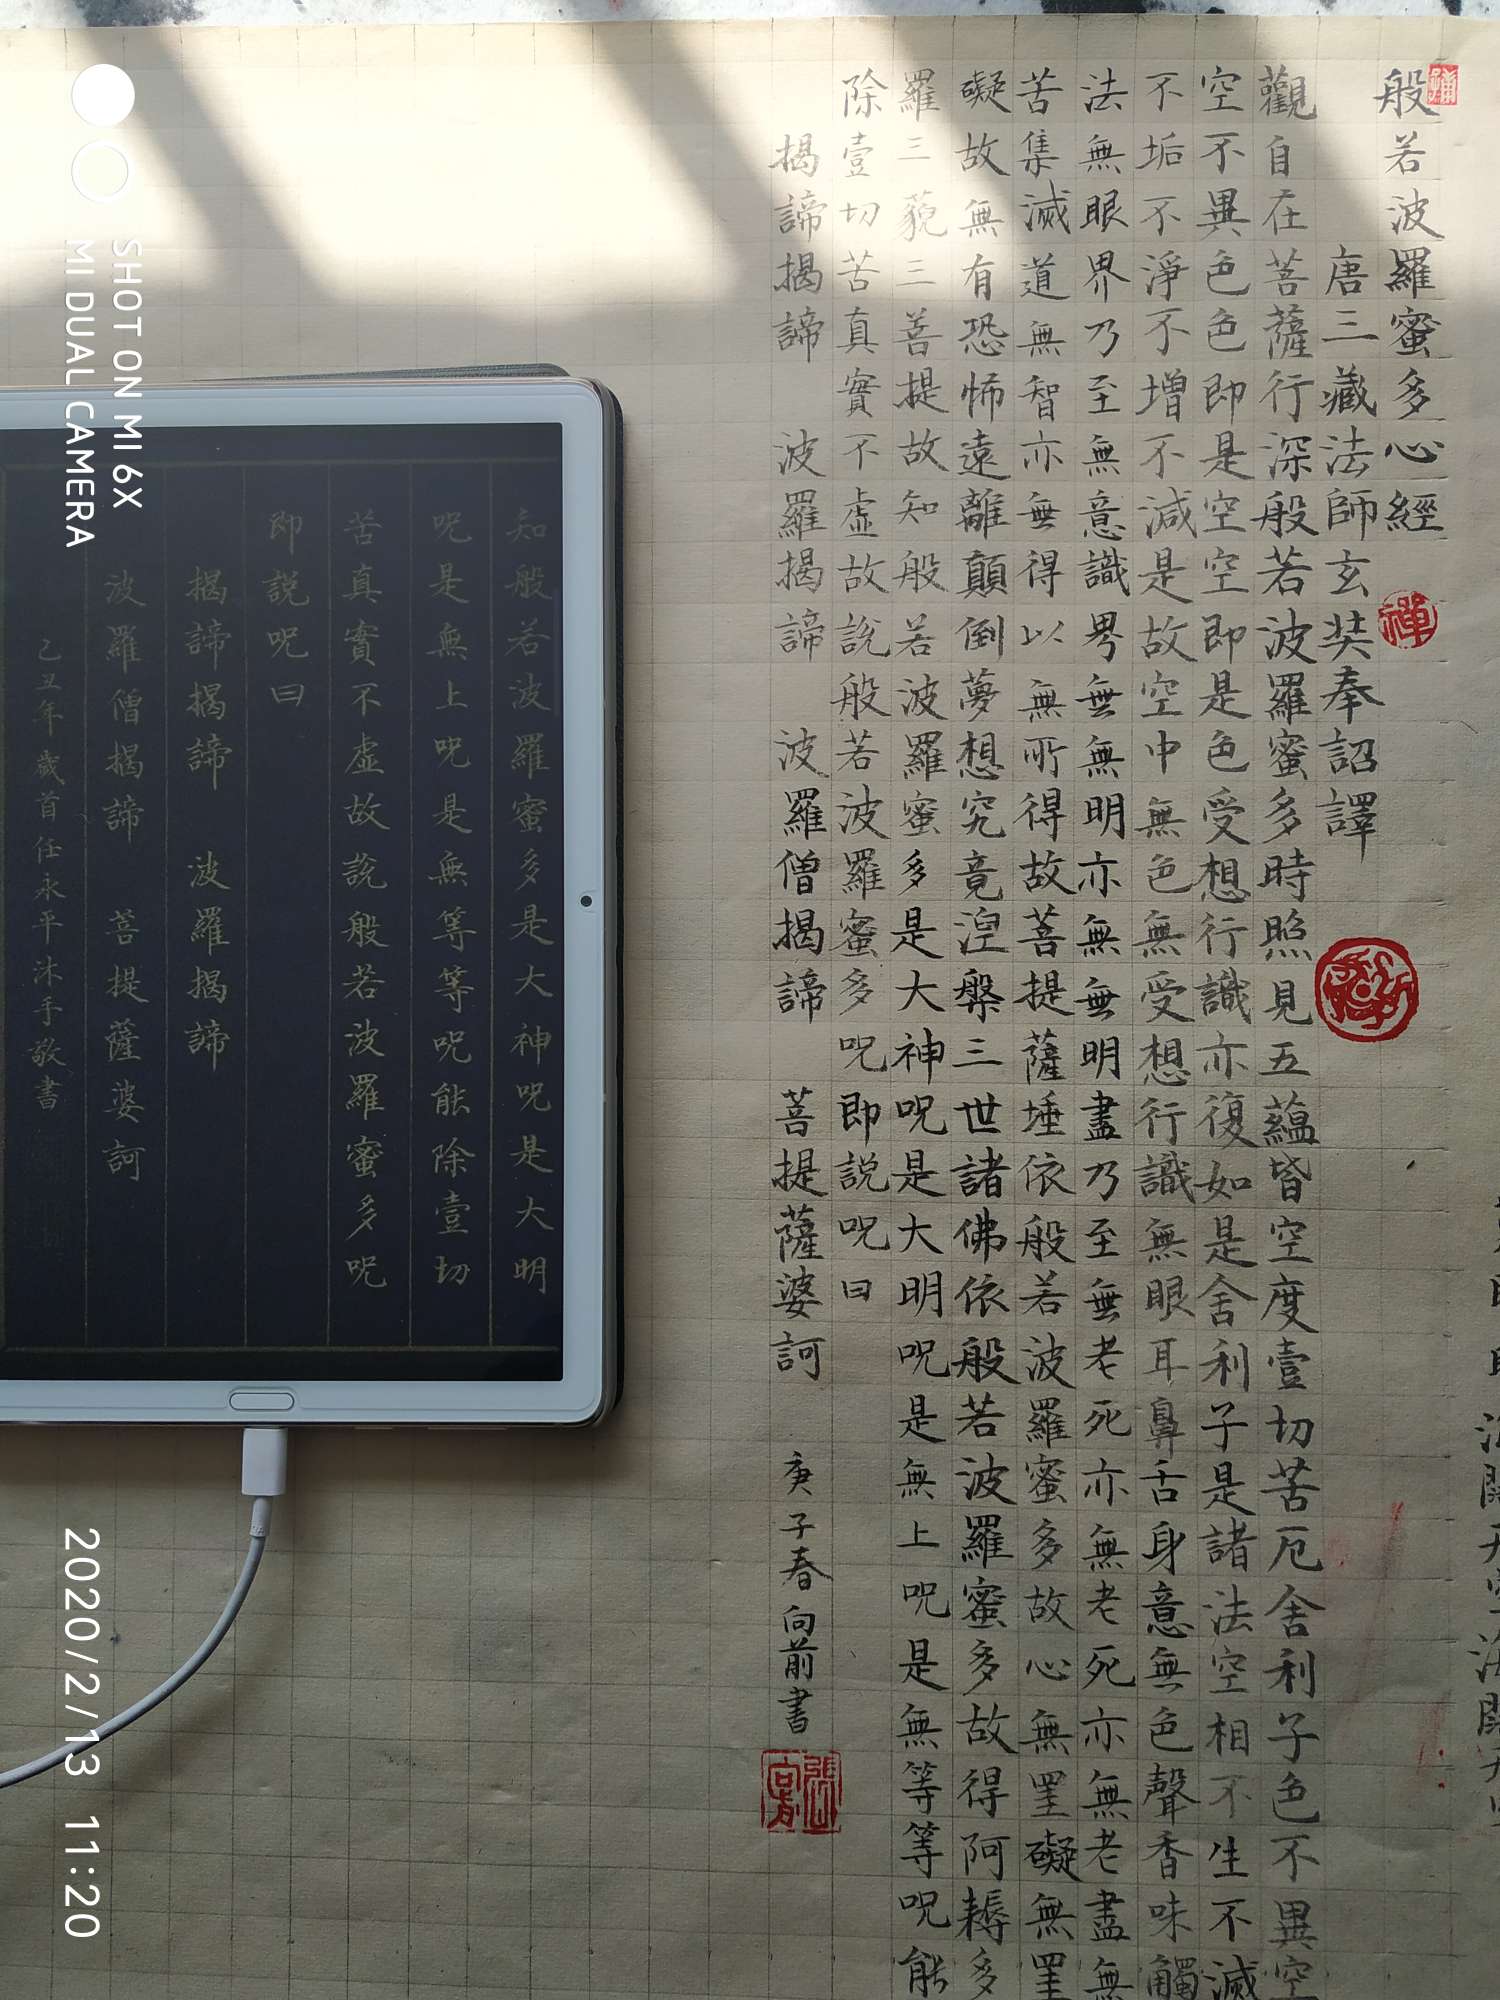 般若波羅蜜多心經
禪
唐三藏法師玄奘奉詔譯
觀自在菩薩行深般若波羅蜜多時照見五蘊皆空度壹切苦厄舍利子色不異空
空不異色色即是空空即是色受想行識亦復如是舍利子是諸法空相不生不滅
不垢不淨不增不減是故空中無色無受想行識無眼耳鼻舌身意無色聲香味觸
法無眼界乃至無意識界無無明亦無無明盡乃至無老死亦無老死亦無老盡無
苦集滅道無智亦無得以無所得故菩提薩埵依般若波羅蜜多故心無罣礙無罣
礙故無有恐怖遠離顛倒夢想究竟涅槃三世諸佛依般若波羅蜜多故得阿耨多
羅三藐三菩提故知般若波羅蜜多是大神呪是大明呪是無上呪是無等等呪能
除壹切苦真實不虛故說般若波羅蜜多呪即說呪曰
揭諦揭諦 波羅揭諦 波羅僧揭諦 菩提薩婆訶 庚子春向前書
知般若波羅蜜多是大神呪是大明
呪是無上呪是無等等呪能除壹切
苦真實不虛故說般若波羅蜜多呪
即說呪曰
揭諦揭諦 波羅揭諦
波羅僧揭諦 菩提薩婆訶
己丑年歲首任永平沐手敬書
SHOT ON MI 6X
MI DUAL CAMERA
2020/2/13 11:20